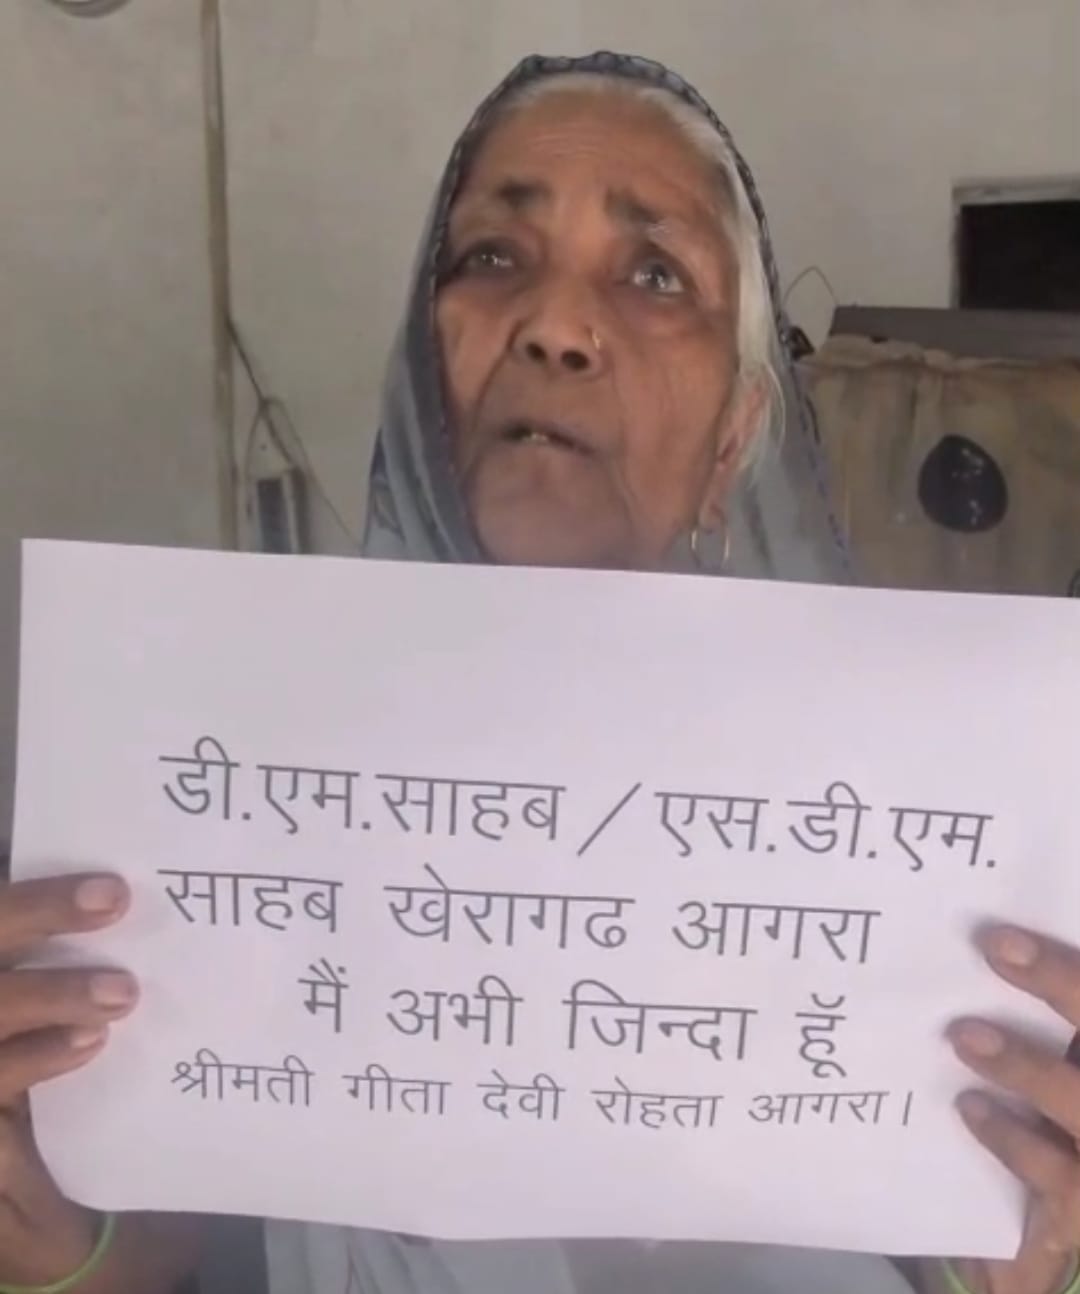 डी.एम.साहब / एस.डी.एम.
साहब खेरागढ आगरा
मैं अभी जिन्दा हूॅ
श्रीमती गीता देवी रोहता आगरा।